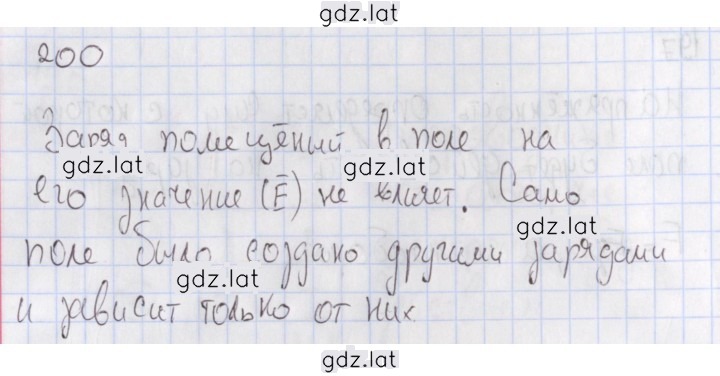 gdz.lat
200
Заряд помещёный в поле на
gdz.lat gdz.lat
его значение (E) не влияет. Само
gdz.lat
поле было создано другими зарядами
gdz.lat
и зависит только от них
gdz.lat